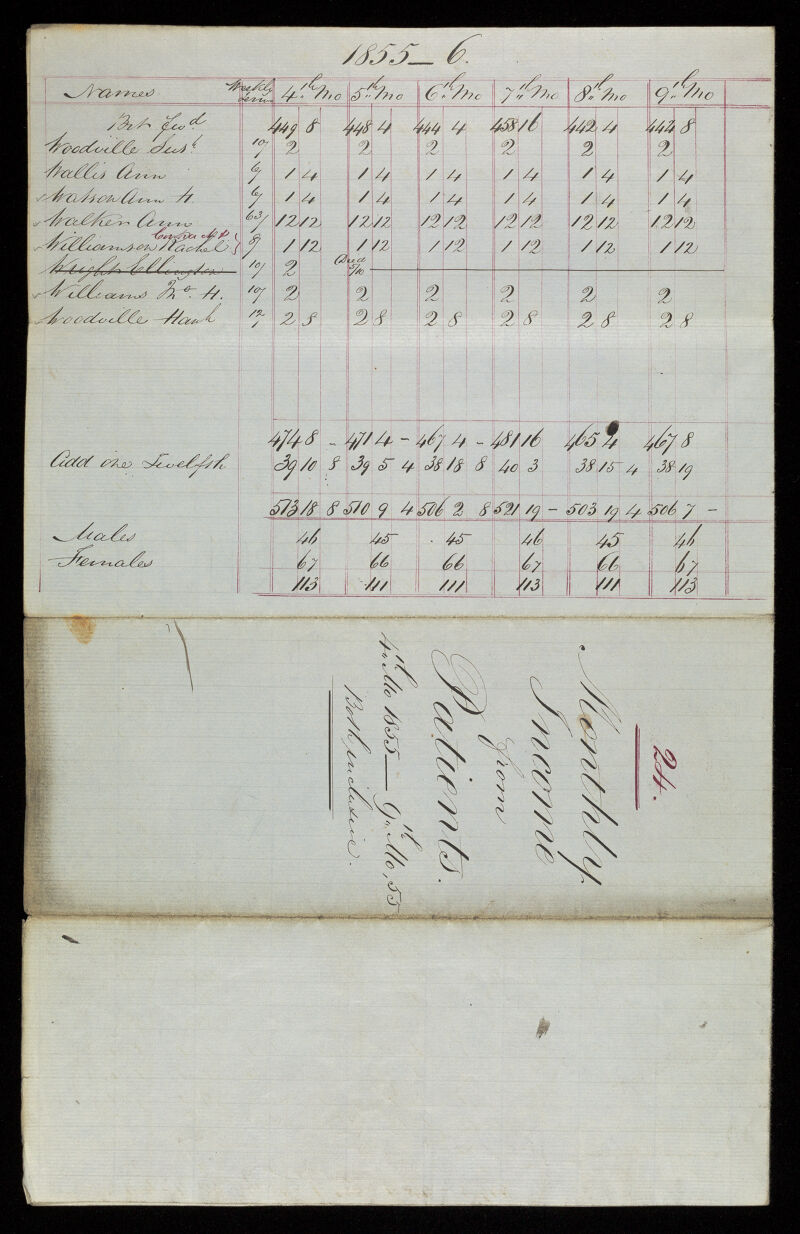 1855 — 6.
Names Weekly terms 4th Mo 5th Mo 6th Mo 7th Mo 8th Mo 9th Mo
Brt Fwd 449 8 448 4 444 4 458 16 442 4 444 8
Woodville Sush 10/ 2 2 2 2 2 2
Wallis Ann 6/ 1 4 1 4 1 4 1 4 1 4 1 4
Watson Ann H. 6/ 1 4 1 4 1 4 1 4 1 4 1 4
Walker Ann 63/ 12 12 12 12 12 12 12 12 12 12 12 12
Williamson Rachel 8/ 1 12 1 12 1 12 1 12 1 12 1 12
Wright Ellington 10/ 2 Died 5/10
Williams Jno. H. 10/ 2 2 2 2 2 2
Woodville Hanh 12/ 2 8 2 8 2 8 2 8 2 8 2 8
474 8 - 471 4 - 467 4 - 481 16 465 4 467 8
Add one Twelfth 39 10 8 39 5 4 38 18 8 40 3 38 15 4 38 19
513 18 8 510 9 4 506 2 8 521 19 - 503 19 4 506 7 -
Males 46 45 45 46 45 46
Females 67 66 66 67 66 67
113 111 111 113 111 113
24.
Monthly
Income
from
Patients.
4th Mo 1855 — 9th Mo, 55
Both inclusive.